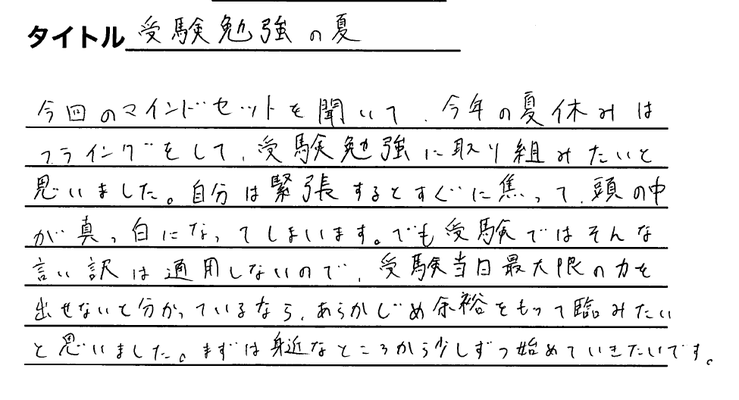 タイトル 受験勉強の夏
今回のマインドセットを聞いて、今年の夏休みは
フライングをして、受験勉強に取り組みたいと
思いました。自分は緊張するとすぐに焦って、頭の中
が真っ白になってしまいます。でも受験ではそんな
言い訳は通用しないので、受験当日最大限の力を
出せないと分かっているなら、あらかじめ余裕をもって臨みたい
と思いました。まずは身近なところから少しずつ始めていきたいです。